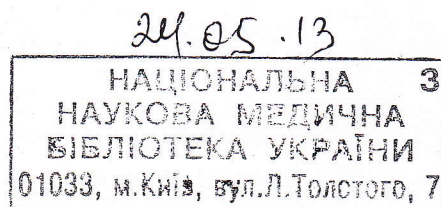 24.05.13
НАЦІОНАЛЬНА З
НАУКОВА МЕДИЧНА
БІБЛІОТЕКА УКРАЇНИ
01033, м.Київ, вул.Л.Толстого, 7